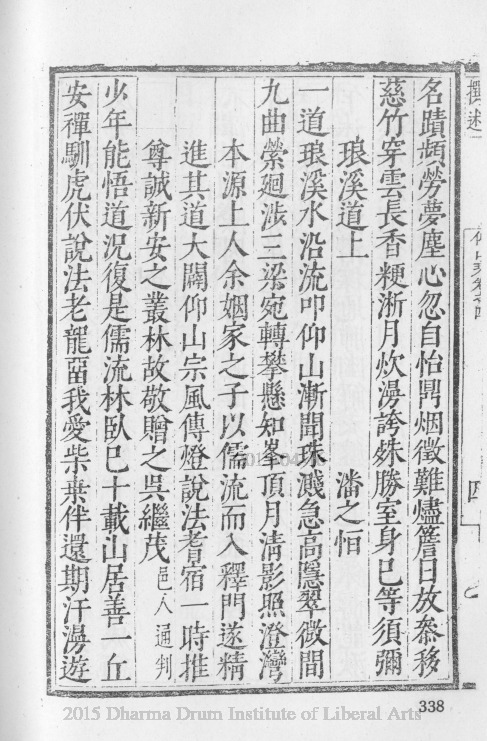 撰述
仰山
四
名蹟頻勞夢塵心忽自怡鬥烟徵難燼簷日放𣕕移
慈竹穿雲長香粳淅月炊漫誇姝勝室身已等須彌
琅溪道上 潘之恒
一道琅溪水沿流叩仰山漸聞珠濺急高隱翠微間
九曲縈廻涉三梁宛轉攀懸知峯頂月清影照澄灣
本源上人余姻家之子以儒流而入釋門遂精
進其道大闢仰山宗風傳燈說法耆宿一時推
尊誠新安之叢林故敬贈之吳繼茂邑人通判
少年能悟道況復是儒流林臥已十載山居善一丘
安禪馴虎伏說法老龍畱我愛柴桒伴還期汗漫遊
2015 Dharma Drum Institute of Liberal Arts
338